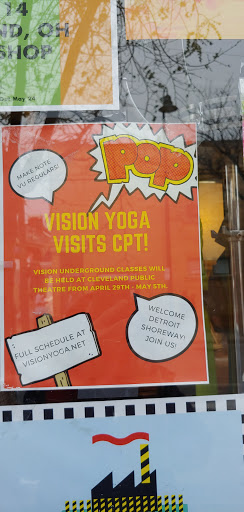 14
ND, OH
SHOP
MAKE NOTE
VU REGULARS!
POP
VISION YOGA
VISITS CPT!
VISION UNDERGROUND CLASSES WILL
BE HELD AT CLEVELAND PUBLIC
THEATRE FROM APRIL 29TH - MAY 5TH.
WELCOME
DETROIT
SHOREWAY!
JOIN US!
FULL SCHEDULE AT
VISIONYOGA.NET